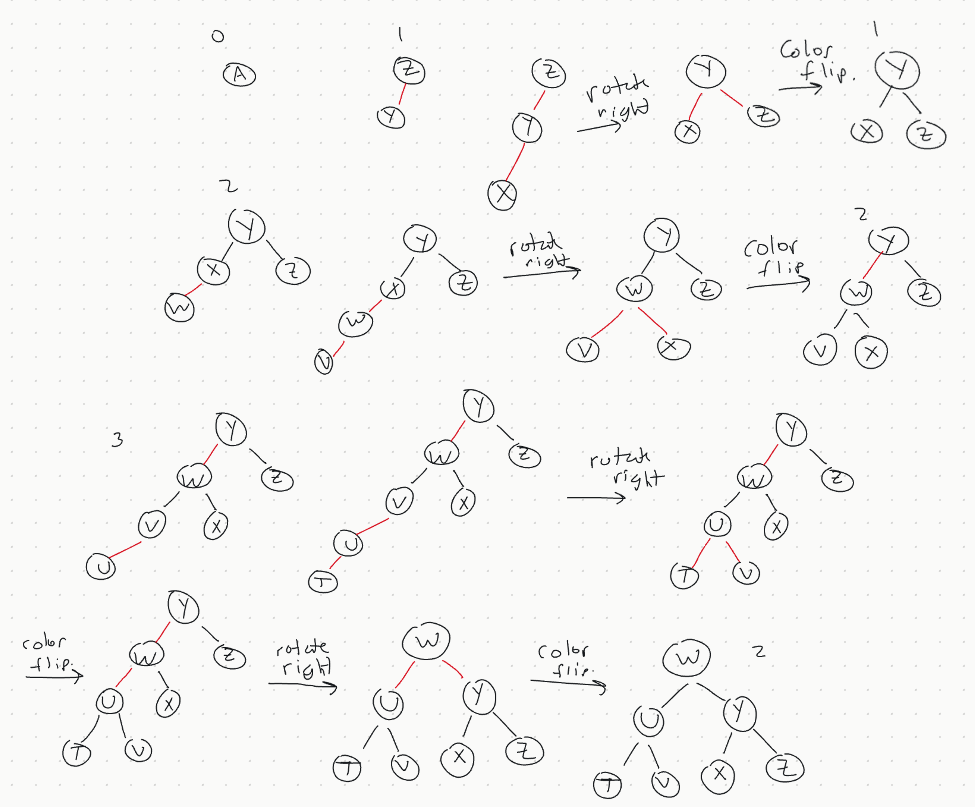 0
A
1
Z
Y
Z
Y
X
rotate
right
Y
X
Z
Color
flip.
1
Y
X
Z
2
Y
X
Z
W
Y
X
Z
W
V
rotate
right
Y
W
Z
V
X
color
flip
2
Y
W
Z
V
X
3
Y
W
Z
V
X
U
Y
W
Z
V
X
U
T
rotate
right
Y
W
Z
U
X
T
V
color
flip.
Y
W
Z
U
X
T
V
rotate
right
W
U
Y
T
V
X
Z
color
flip.
W
2
U
Y
T
V
X
Z